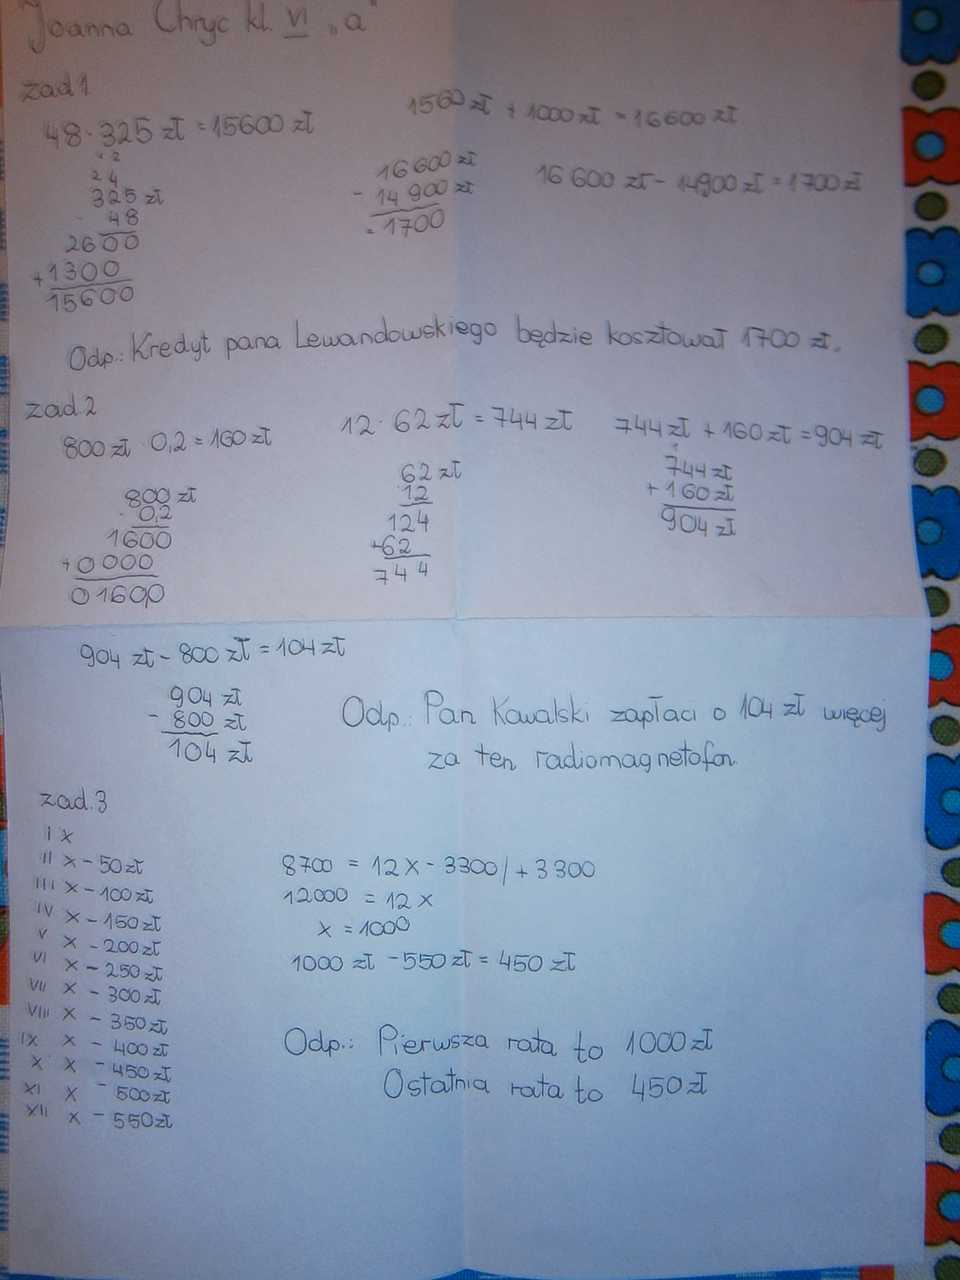 Joanna Chryc kl. VI „a"
zad 1
48 · 325 zł = 15600 zł
1560 zł + 1000 zł = 16600 zł
2
24
325 zł
· 48
2600
+1300
15600
16600 zł
- 14 900 zł
= 1700
16 600 zł - 14900 zł = 1700 zł
Odp.: Kredyt pana Lewandowskiego będzie kosztował 1700 zł.
zad.2
800 zł · 0,2 = 160 zł
12 · 62 zł = 744 zł
744 zł + 160 zł = 904 zł
800 zł
· 0,2
1600
+0000
0160,0
62 zł
12
124
+62
744
744 zł
+ 160 zł
904 zł
904 zł - 800 zł = 104 zł
904 zł
- 800 zł
104 zł
Odp.: Pan Kowalski zapłaci o 104 zł więcej
za ten radiomagnetofon.
zad.3
I x
II x - 50 zł
III x - 100 zł
IV x - 150 zł
V x - 200 zł
VI x - 250 zł
VII x - 300 zł
VIII x - 350 zł
IX x - 400 zł
X x - 450 zł
XI x - 500 zł
XII x - 550 zł
8700 = 12x - 3300 / + 3300
12000 = 12 x
x = 1000
1000 zł - 550 zł = 450 zł
Odp.: Pierwsza rata to 1000 zł
Ostatnia rata to 450 zł